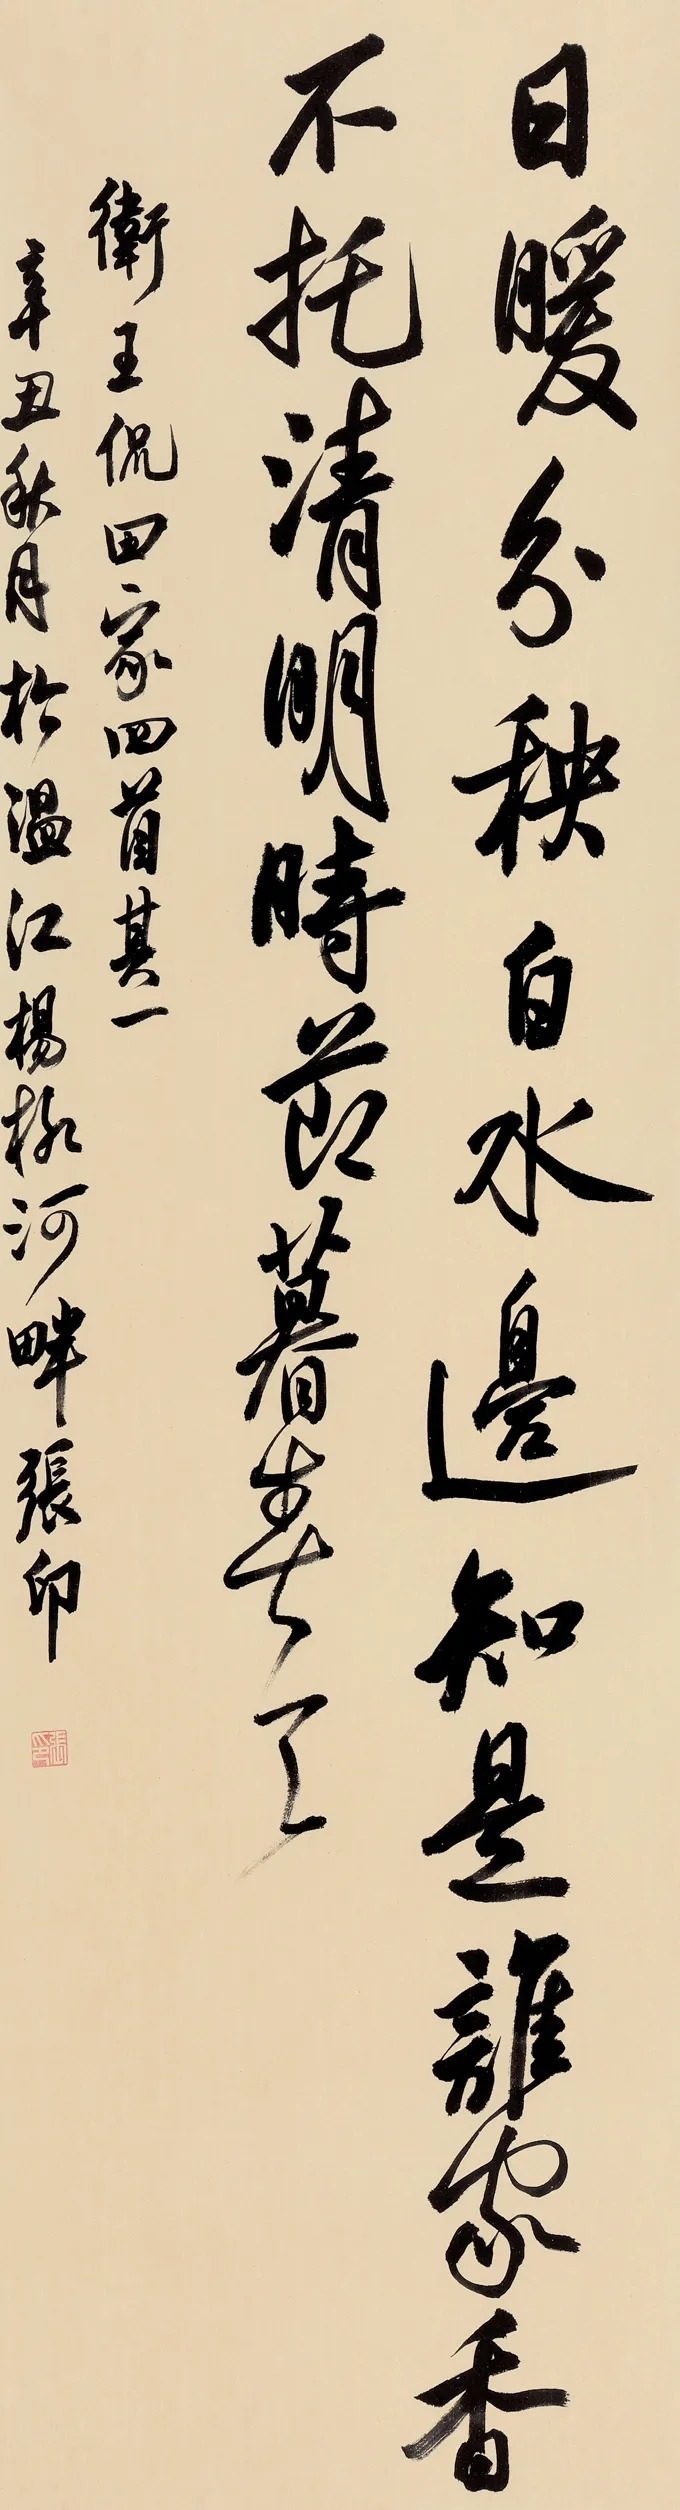 日暖分秧白水邊知是誰家香
不托清明時節暮春天
衛王侃田家四首其一
辛丑秋月於温江楊柳河畔張印
張印